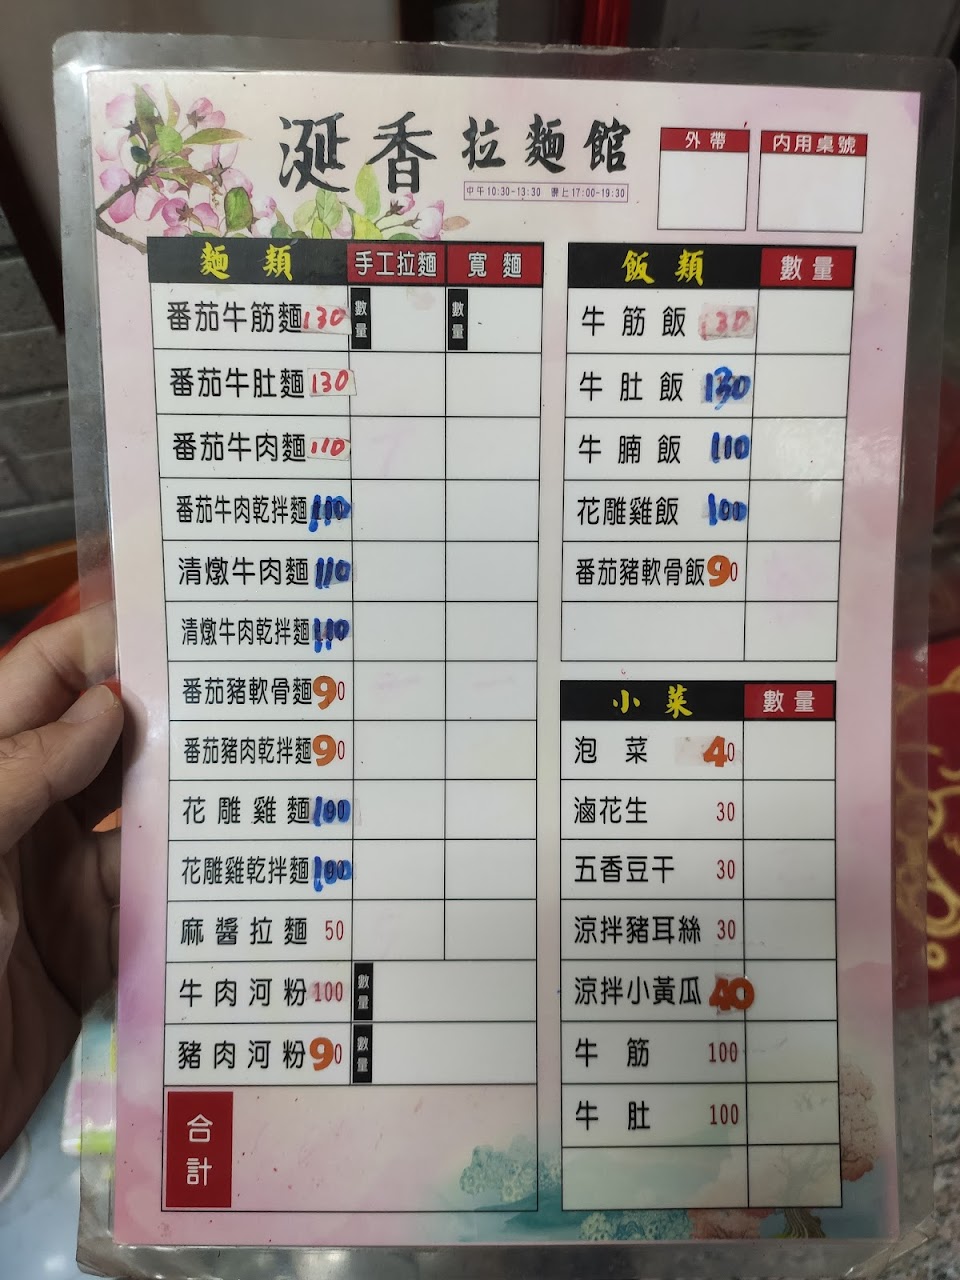 涎香拉麵館
中午10:30-13:30 晚上17:00-19:30
外帶
內用桌號
麵類 手工拉麵 寬麵
番茄牛筋麵 130 數量 數量
番茄牛肚麵 130
番茄牛肉麵 110
番茄牛肉乾拌麵 110
清燉牛肉麵 110
清燉牛肉乾拌麵 110
番茄豬軟骨麵 90
番茄豬肉乾拌麵 90
花雕雞麵 100
花雕雞乾拌麵 100
麻醬拉麵 50
牛肉河粉 100 數量
豬肉河粉 90 數量
合計
飯類 數量
牛筋飯 130
牛肚飯 130
牛腩飯 110
花雕雞飯 100
番茄豬軟骨飯 90
小菜 數量
泡菜 40
滷花生 30
五香豆干 30
涼拌豬耳絲 30
涼拌小黃瓜 40
牛筋 100
牛肚 100